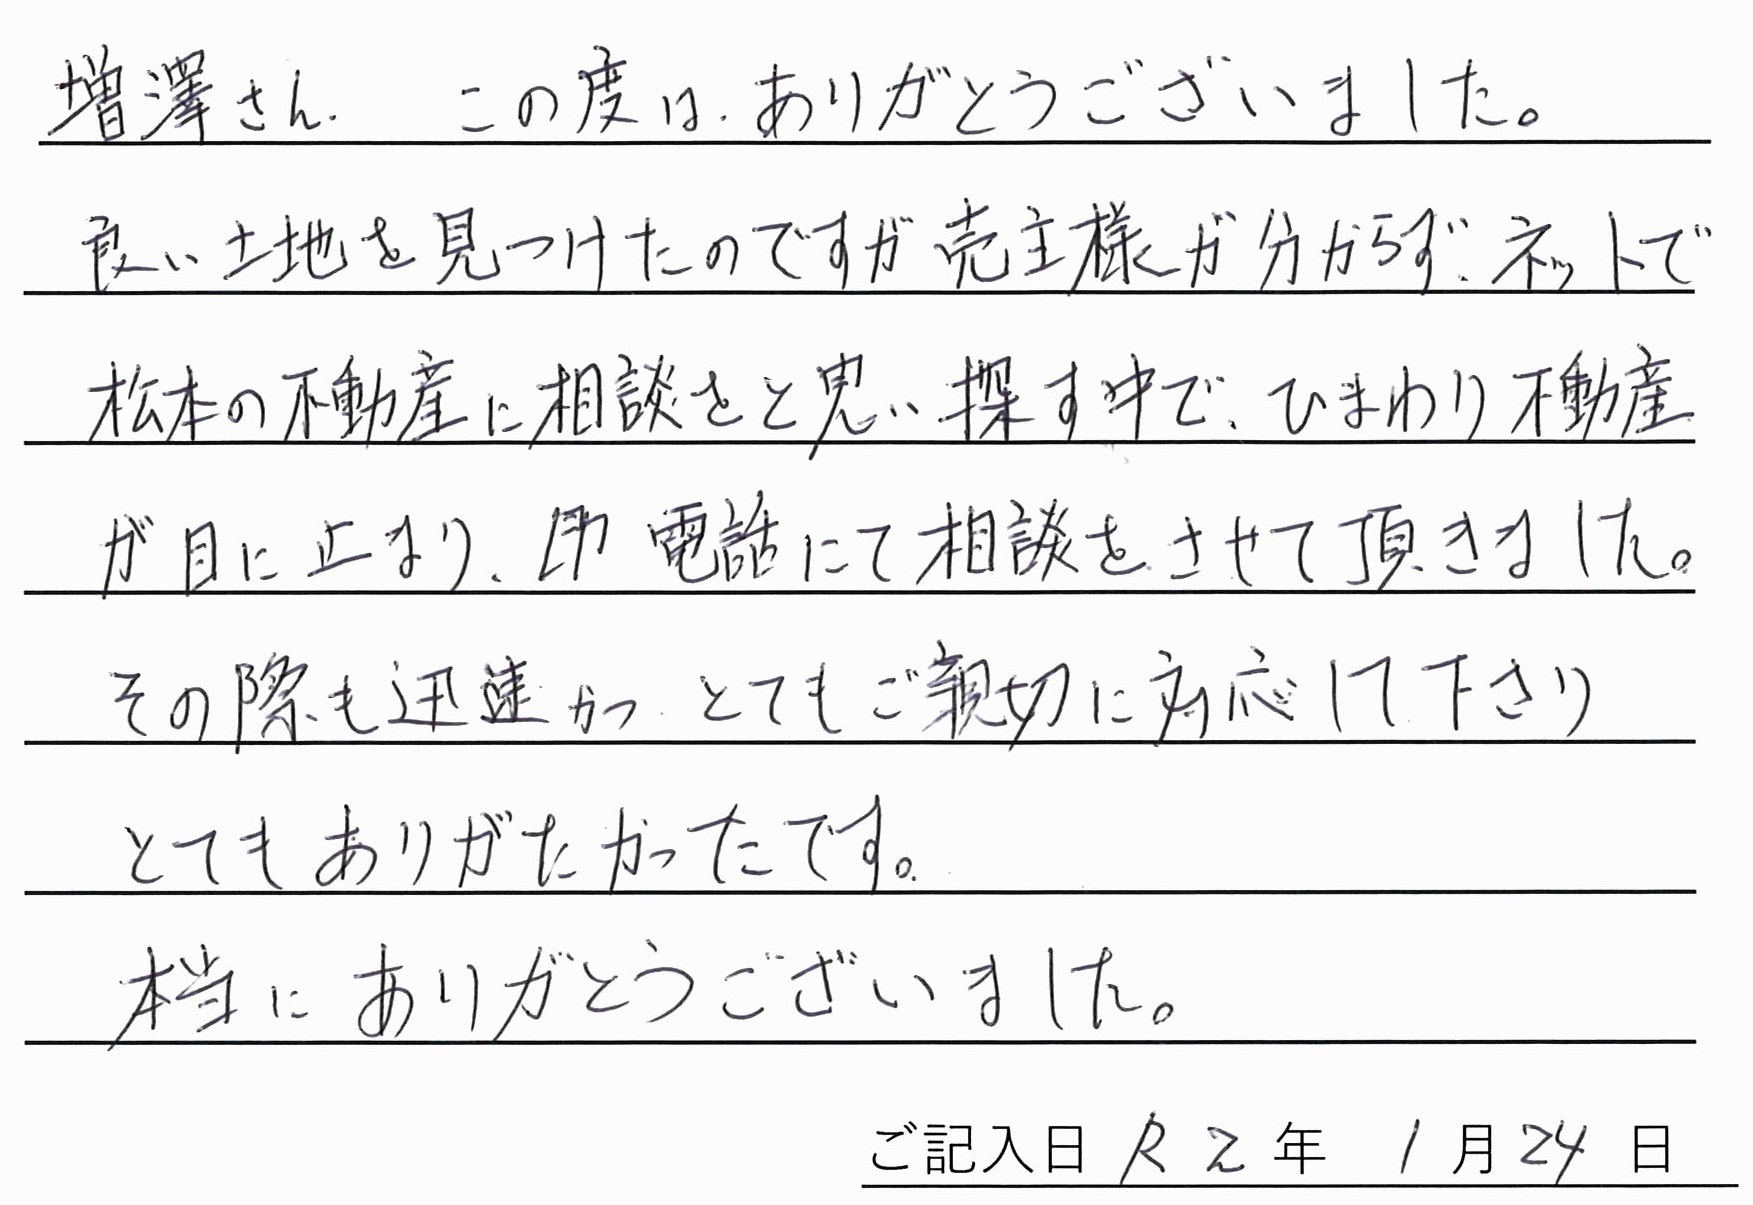 増澤さん. この度は.ありがとうございました。
良い土地を見つけたのですが売主様が分からず、ネットで
松本の不動産に相談をと思い探す中で、ひまわり不動産
が目に止まり、即 電話にて相談をさせて頂きました。
その際も迅速かつ とてもご親切に対応して下さり
とてもありがたかったです。
本当にありがとうございました。
ご記入日 R2年 1月24日